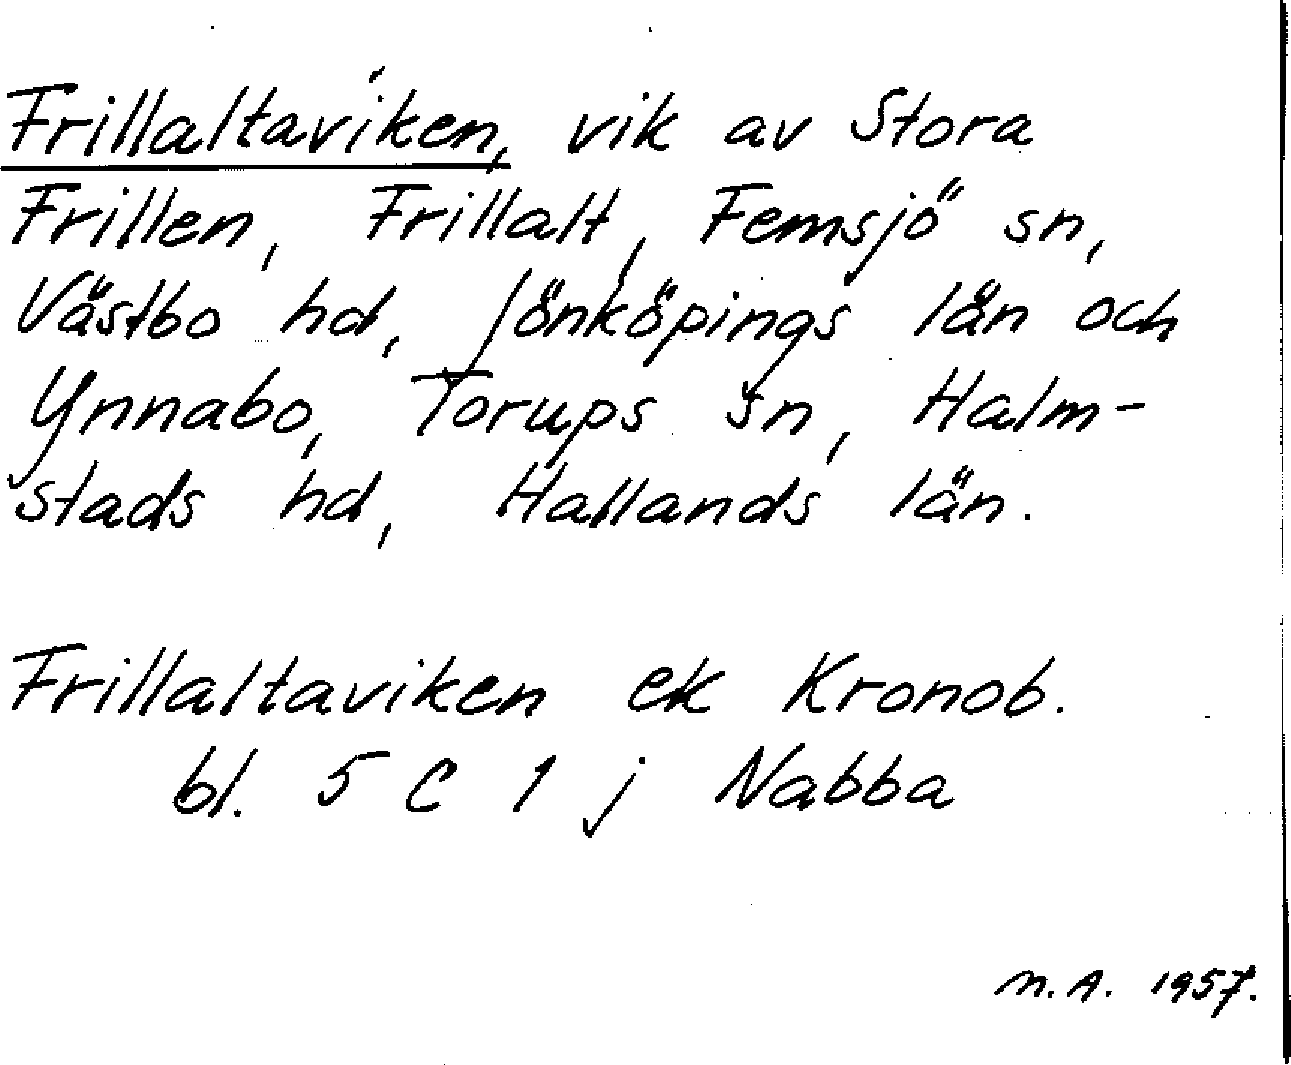 Frillaltaviken, vik av Stora
Frillen, Frillalt, Femsjö sn,
Västbo hd, Jönköpings län och
Ynnabo, Torups sn, Halm-
stads hd, Hallands län.
Frillaltaviken ek Kronob.
bl. 5 C 1 j Nabba
M.A. 1957.